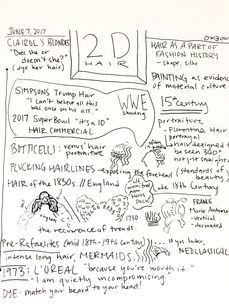 JUNE 7, 2017
CLAIROL'S BLONDES
"Does she or doesn't she?"
(dye her hair)
2D
HAIR
HAIR AS A PART OF
FASHION HISTORY
- shape, silh
PAINTING as evidence
of material culture
SIMPSONS Trump Hair
"I can't believe all this
was once on his ass."
2017 SuperBowl "it's a 10"
HAIR COMMERCIAL
WWE
shaving
15th Century
portraiture
- Florentine Hair
portrayal
hair designed to
be seen 360°
not just straight
BOTTICELLI - venus' hair
portraiture
PLUCKING HAIRLINES - exposing the forehead
(standards of beauty)
HAIR OF THE 1830s // England
late 18th Century
1780
WIGS
FRANCE
Marie Antoinette
vertical
decorated
the recurrence of trends.
Pre-Rafaelites (mid 18th-19th Century)
intense long hair, MERMAIDS
yrs later,
NEOCLASSICAL
1973: L'OREAL "because you're worth it."
"I am quietly uncompromising."
DYE - match your beard to your head!